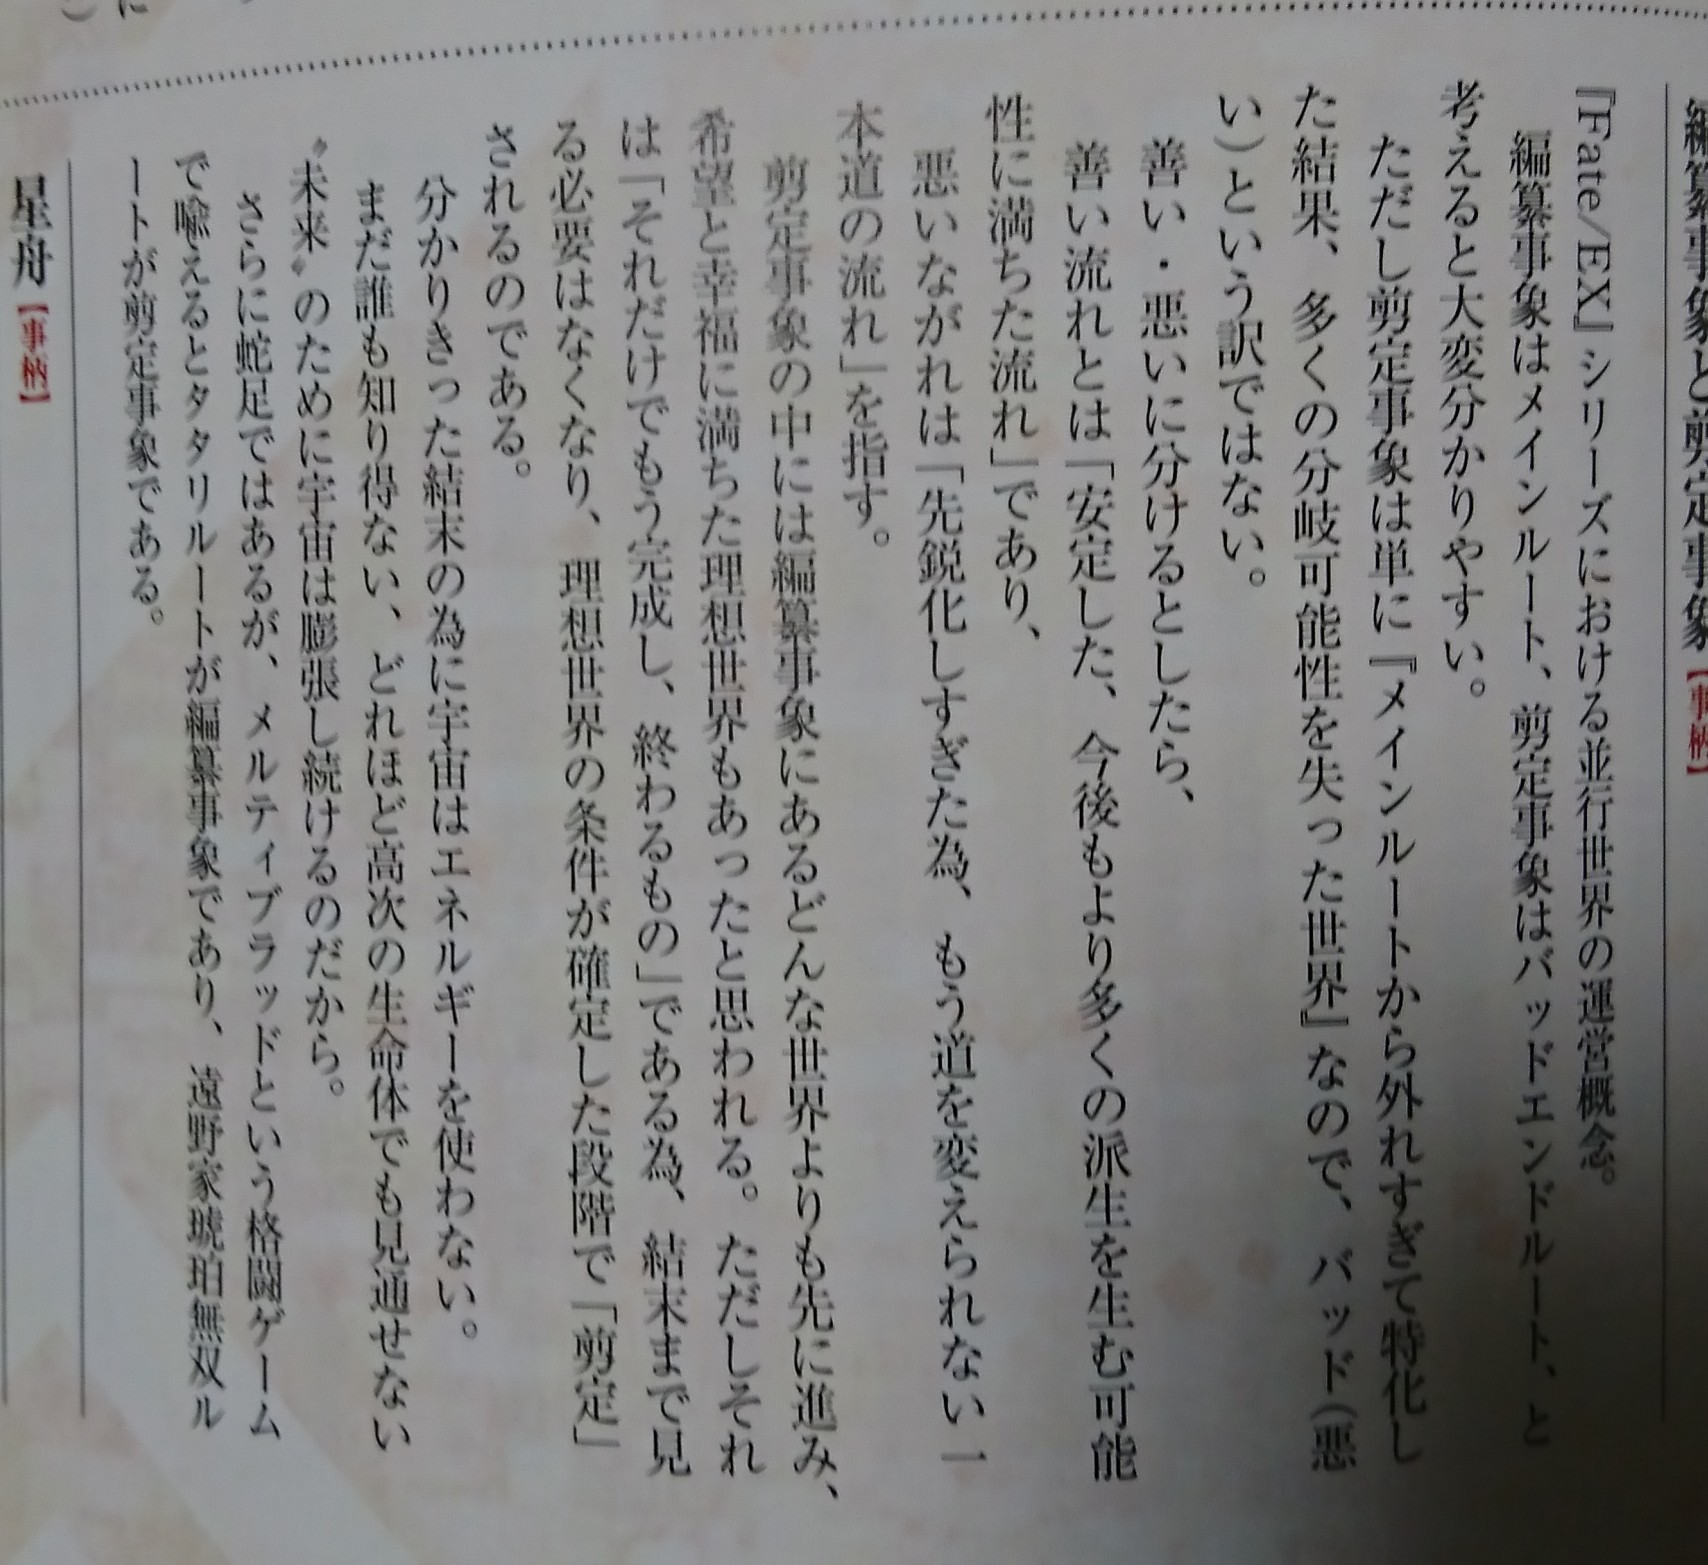 編纂事象と剪定事象【事柄】
『Fate/EX』シリーズにおける並行世界の運営概念。
編纂事象はメインルート、剪定事象はバッドエンドルート、と
考えると大変分かりやすい。
ただし剪定事象は単に『メインルートから外れすぎて特化し
た結果、多くの分岐可能性を失った世界』なので、バッド(悪
い)という訳ではない。
善い・悪いに分けるとしたら、
善い流れとは「安定した、今後もより多くの派生を生む可能
性に満ちた流れ」であり、
悪いながれは「先鋭化しすぎた為、もう道を変えられない一
本道の流れ」を指す。
剪定事象の中には編纂事象にあるどんな世界よりも先に進み、
希望と幸福に満ちた理想世界もあったと思われる。ただしそれ
は「それだけでもう完成し、終わるもの」である為、結末まで見
る必要はなくなり、理想世界の条件が確定した段階で「剪定」
されるのである。
分かりきった結末の為に宇宙はエネルギーを使わない。
まだ誰も知り得ない、どれほど高次の生命体でも見通せない
〝未来〟のために宇宙は膨張し続けるのだから。
さらに蛇足ではあるが、メルティブラッドという格闘ゲーム
で喩えるとタタリルートが編纂事象であり、遠野家琥珀無双ル
ートが剪定事象である。
星舟【事柄】
に
)